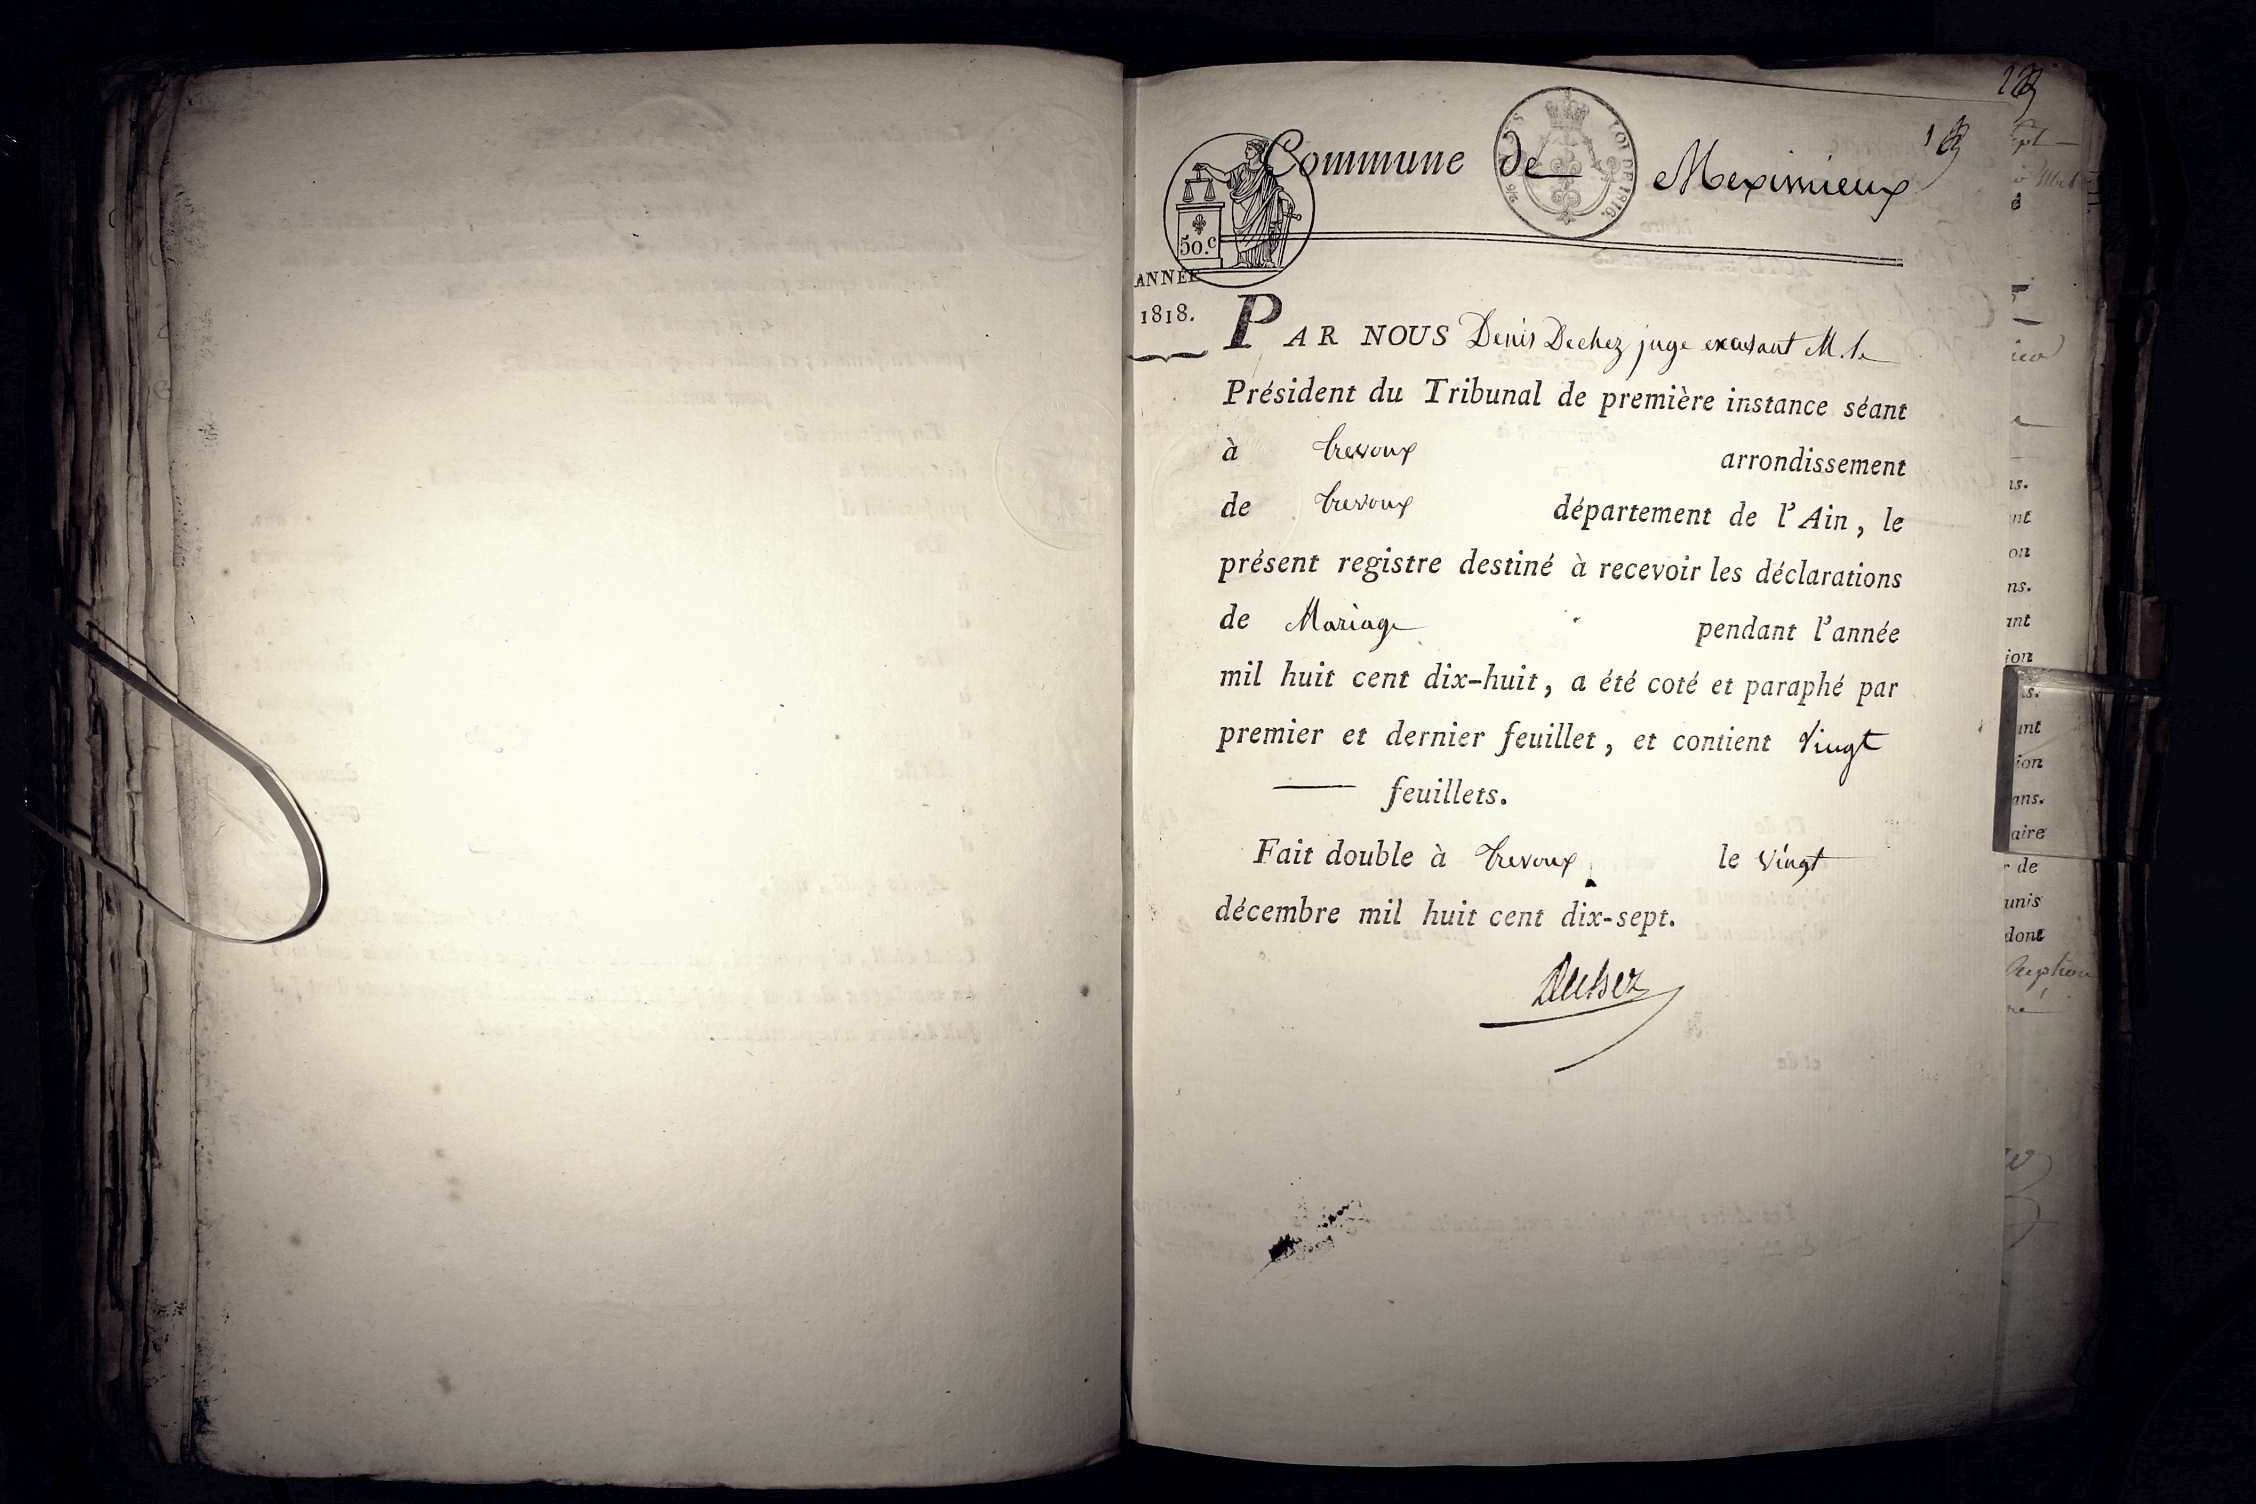 Commune de Meximieux
LOI DE 1816.
50.c
ANNÉE
1818.
PAR NOUS Denis Dechez juge excusant M. le
Président du Tribunal de première instance séant
à Trevoux arrondissement
de Trevoux département de l'Ain, le
présent registre destiné à recevoir les déclarations
de Mariage pendant l'année
mil huit cent dix-huit, a été coté et paraphé par
premier et dernier feuillet, et contient Vingt
feuillets.
Fait double à Trevoux le Vingt
décembre mil huit cent dix-sept.
Dechez
ns.
ant
ion
ans.
aire
de
unis
dont